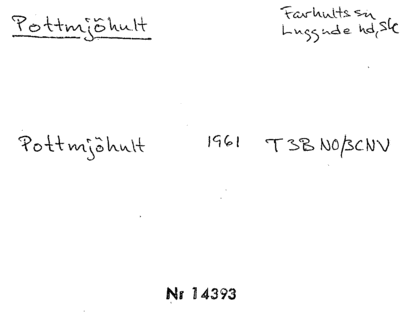 Pottmjöhult
Farhults sn
Luggude hd, Sk
Pottmjöhult 1961 T 3B NO/3C NV
Nr 14393